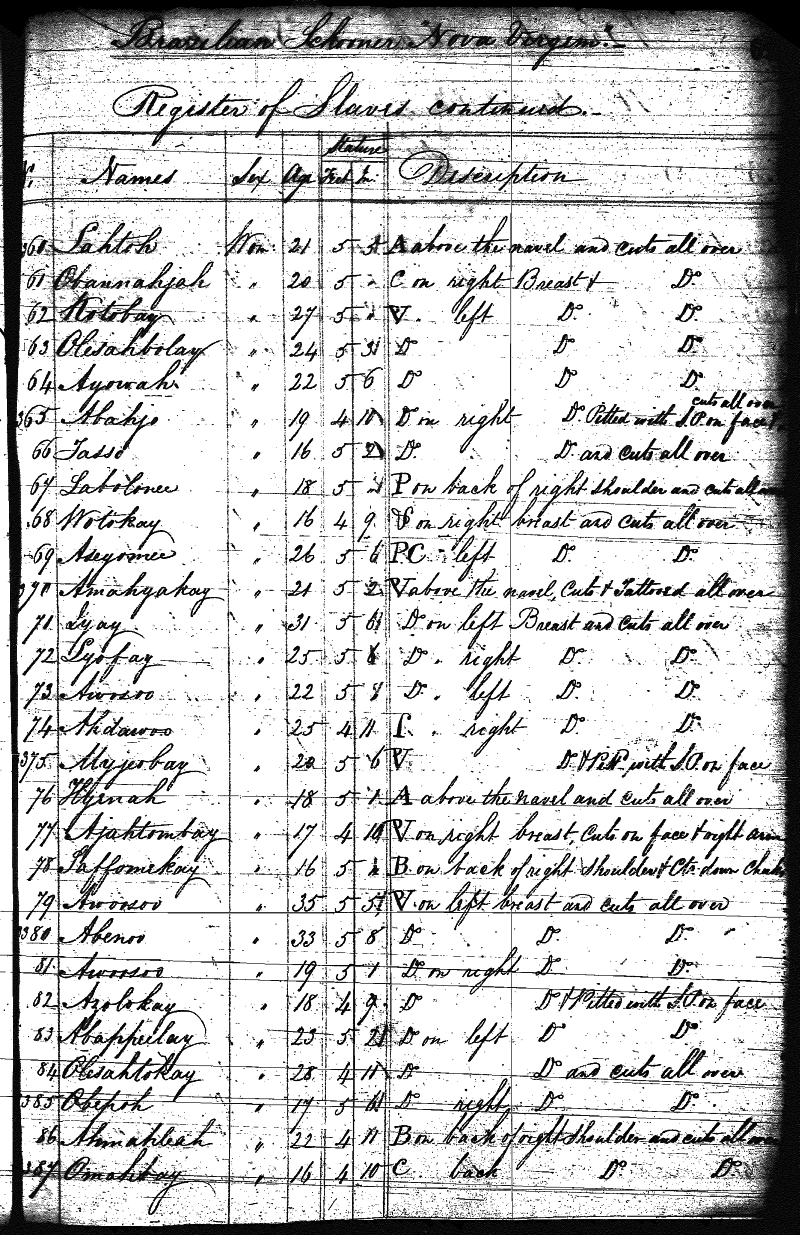 Brazilian Schooner "Nova Virgem"
Register of Slaves continued.-
Stature
No. Names Sex Age Feet In. Description
360 Lahtoh Wom 21 5 A above the navel and cuts all over
61 Obannahjah " 20 5 " C on right Breast & Do.
62 Kotobay " 27 5 " V. left Do. Do.
63 Olesahbolay " 24 5 3½ Do Do Do.
64 Ayowah " 22 5 6 Do Do Do.
cuts all over
365 Abahjo " 19 4 10 Do on right Do. Pitted with S.P. on face &
66 Jasso " 16 5 2 Do. Do and cuts all over
67 Labolonee " 18 5 P on back of right shoulder and cuts all over
68 Wotokay " 16 4 9 on right breast and cuts all over
69 Aseyomee " 26 5 6 PC " left Do. Do.
370 Amahyakay " 21 5 2 V above the navel, Cuts & Tattooed all over
71 Lyay " 31 5 6½ Do on left Breast and cuts all over
72 Lyofay " 25 5 Do . right Do. Do.
73 Awosoo " 22 5 Do . left Do. Do.
74 Ahdawoo " 25 4 11 . right Do. Do.
375 Myjeobay " 20 5 6 V Do. & Pitd. with S.P. on face
76 Hyenah " 18 5 1 A above the navel and cuts all over
77 Ajahtombay " 17 4 10 V on right breast, Cuts on face & right arm
78 Saffomekay " 16 5 B. on back of right shoulder & Cts. down Cheeks
79 Awoosoo " 35 5 V. on left breast and cuts all over
380 Abenoo " 33 5 8 Do Do. Do.
81 Awoosoo " 19 5 1 Do on right Do Do.
82 Azolokay " 18 4 9 Do Do & Pitted with S.P. on face
83 Abappeelay " 23 5 2½ Do on left Do Do
84 Olesahtokay " 28 4 11 Do Do and cuts all over
385 Obepoh " 17 5 Do right Do Do.
86 Ahmahleah " 22 4 11 B on back of right shoulder and cuts all over
387 Omahbay " 16 4 10 C. back — Do. Do.